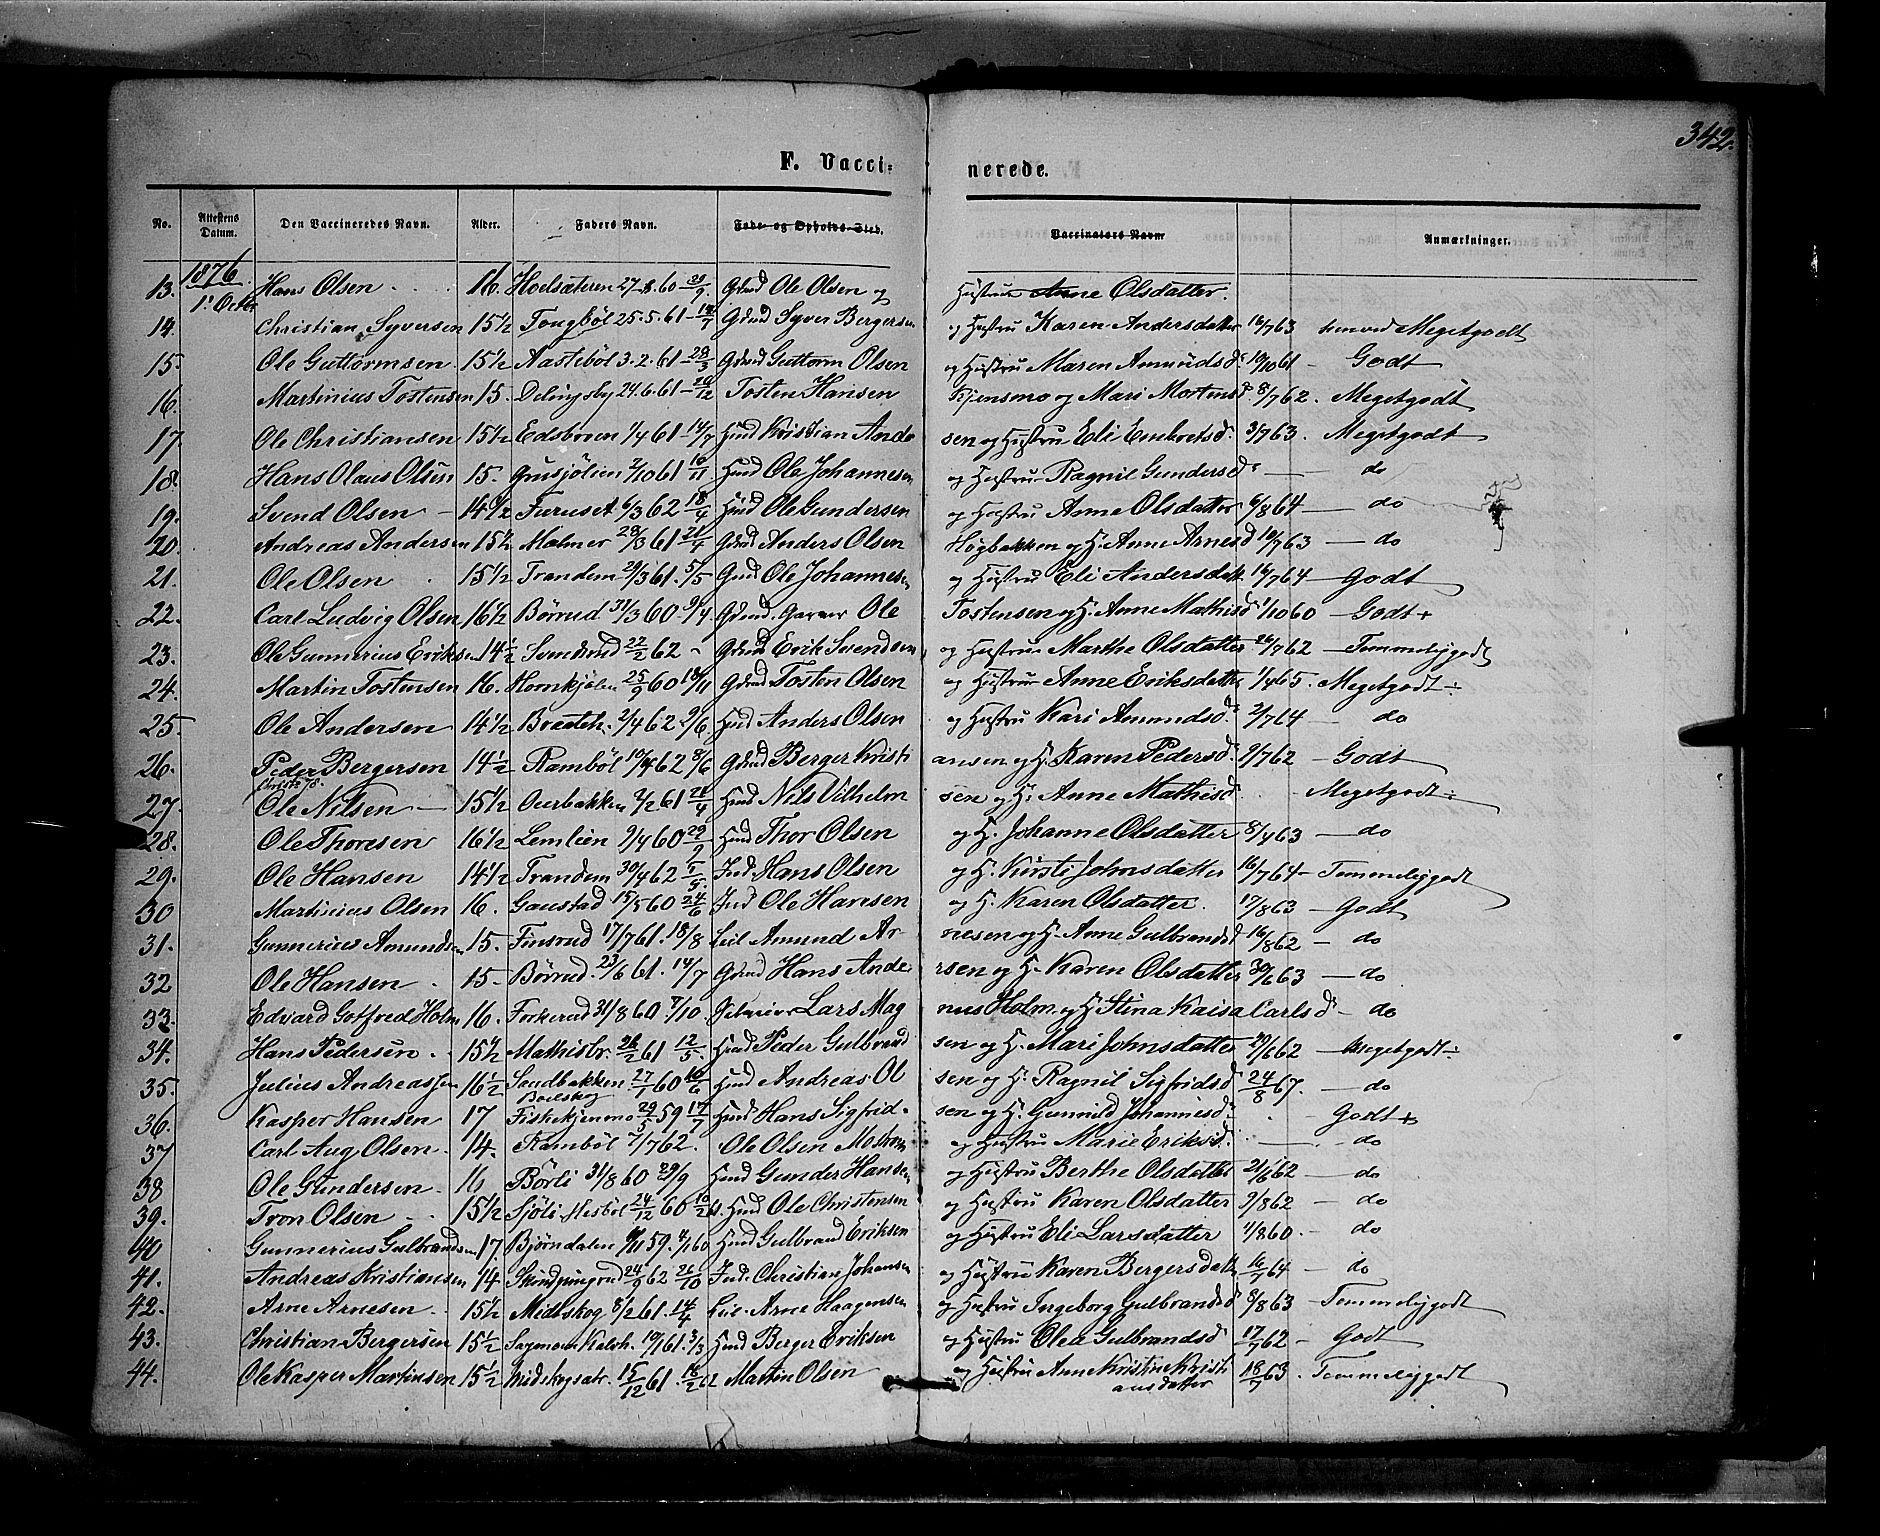 342.
F. Vacci-nerede.
No. Attestens Datum. Den Vaccineredes Navn. Alder. Faders Navn. Føde- og Opholds-Sted. Vaccinators Navn Anmærkninger.
1876
13. 1' Octbr Hans Olsen 16. Hoelsæteren 27-8.60 - Gdmd Ole Olsen og Hustrue Anne Olsdatter.
14. Christian Syversen 15½ Tongböl 25.5.61 - 14/7 Gdmd Syver Bergersen og Hustru Karen Andersdatter 16/7 63 Megetgodt
15. Ole Guttormsen 15½ Aasteböl 3.2.61 - 28/3 Gdmd Guttorm Olsen og Hustru Maren Amundsd. 10/10 61 - Godt
16. Martinius Tostensen 15. Delingsby 24.6.61 - 26/12 Tosten Hansen og Mari Mortensd. 8/7 62. Megetgodt
17. Ole Christiansen 15½ Edsbroen 1/4 61 - 14/7 Hmd Kristian Andersen og Hustru Eli Embretsd. 3/7 63. Megetgodt
18. Hans Olaus Olsen 15. Grusjölien 2/10 61 10/11 Hmd Ole Johannesen og Hustru Ragnil Gundersd. — do
19. Svend Olsen - 14½ Furuset 6/3 62 18/4 Hmd Ole Gundersen og Hustru Anne Olsdatter 6/8 64 — do
20. Andreas Andersen 15½ Malmer 29/3 61 21/4 Gdmd Anders Olsen Högbakken og H. Anne Arnesd 10/7 63 — do
21. Ole Olsen 15½ Trandem 29/3 61. 5/5 Gmd Ole Johannesen og Hustru Eli Andersdatt 16/7 64 - Godt
22. Carl Ludvig Olsen 16½ Börud 31/3 60 9/4 Gdmd. Garver Ole Tostensen og H. Anne Mathisd 1/10 60 - Godt+
23. Ole Gunnerius Eriksen 14½ Svendrud 22/2 62 - Gdmd Erik Svendsen og Hustrue Marthe Olsdatter 26/7 62 - Temmeligodt
24. Martin Tostensen 16. Hornkjölen 25/9 60 18/11 Gdmd Tosten Olsen og Hustrue Anne Eriksdatter 1/4 65. Megetgodt÷
25. Ole Andersen 14½ Braateh. 2/4 62 9/6 Hmd Anders Olsen og Hustru Kari Amundsd. 2/7 64 — do
26. Peder Bergersen 14½ Ramböl 10/4 62 8/6 Gdmd Berger Kristiansen og H. Karen Pedersd. 9/7 62 - Godt
27. Ole Nilsen — 15½ Ourbakken 2/2 61 21/4 Hmd Nils Vilhelmsen og H. Anne Mathisd. Megetgodt÷
28. Ole Thoresen 16½ Lemlien 9/4 60 29/9 Hmd Thor Olsen og H. Johanne Olsdatter 8/4 63 — do
29. Ole Hansen 14½ Trandem 30/4 62 Ind Hans Olsen og H. Kirsti Johnsdatter 16/7 64 - Temmeligodt
30 Martinius Olsen 16. Gaustad 15/5 60 24/6 Ind Ole Hansen og H. Karen Olsdatter. 17/8 63 - Godt
31. Gunnerius Amundsen 15. Finsrud 17/7 61. 18/8 Leil Amund Arnesen og H. Anne Gulbrandsd 16/8 62 — do
32 Ole Hansen . 15. Börud. 23/6 61. 14/7 Gdmd Hans Andersen og H. Karen Olsdatter 30/6 63 — do
33. Edvard Gotfred Holm 16. Forkerud 31/8 60 7/10 Lars Magnus Holm og H. Stina Kaisa Carlsd. — do
34. Hans Pedersen . 15½ Mathisbr. 26/2 61 12/5. Hmd Peder Gulbrandsen og H. Mari Johnsdatter 29/6 62 - Megetgodt÷
35. Julius Andreassen 16½ Sandbakken 27/7 60 16/6 Hmd Andreas Olsen og H. Ragnil Sigfridsd 24/8 67. — do
36. Kasper Hansen 17 Fiskekjenmo 29/5 59 17/7 Hmd Hans Sigfridsen og H. Gunnild Johannesd. Godt+
37 Carl Aug Olsen. 14. Ramböl 7/7 62. Ole Olsen Mostrom og Hustru Marie Eriksd. — do
38 Ole Gundersen. 16 Börli 31/8 60 29/9 Hmd Gunder Hansen og Hustru Berthe Olsdatter 21/6 62 — do
39. Tron Olsen 15½ Sjöli Hesböl 24/12 60 10/2 61. Hmd Ole Christensen og Hustru Karen Olsdatter 9/8 62 — do
40 Gunnerius Gulbrandsen 17. Björndalen 59. 4/1 60 Hmd Gulbrand Eriksen og Hustru Eli Larsdatter 4/8 60. — do
41. Andreas Kristiansen 14 24/9 62 26/10 Ind. Christian Johansen og Hustru Karen Bergersdatt 16/7 64 — do
42. Arne Arnesen 15½ Midtskog 8/2 61. 14/4 Leil. Arne Haagensen og Hustru Ingeborg Gulbrandsd 8/8 63 - Temmeligodt
43. Christian Bergersen 15½ 10/1 61. 3/3 Hmd Berger Eriksen og Hustru Olea Gulbrandsd 17/7 62 - Godt
44. Ole Kasper Martinsen 15½ Midskogsætr. 15/12 61. 16/2 62 Martin Olsen og Hustru Anne Kristine Kristiansdatter 18/7 63. Temmeligodt